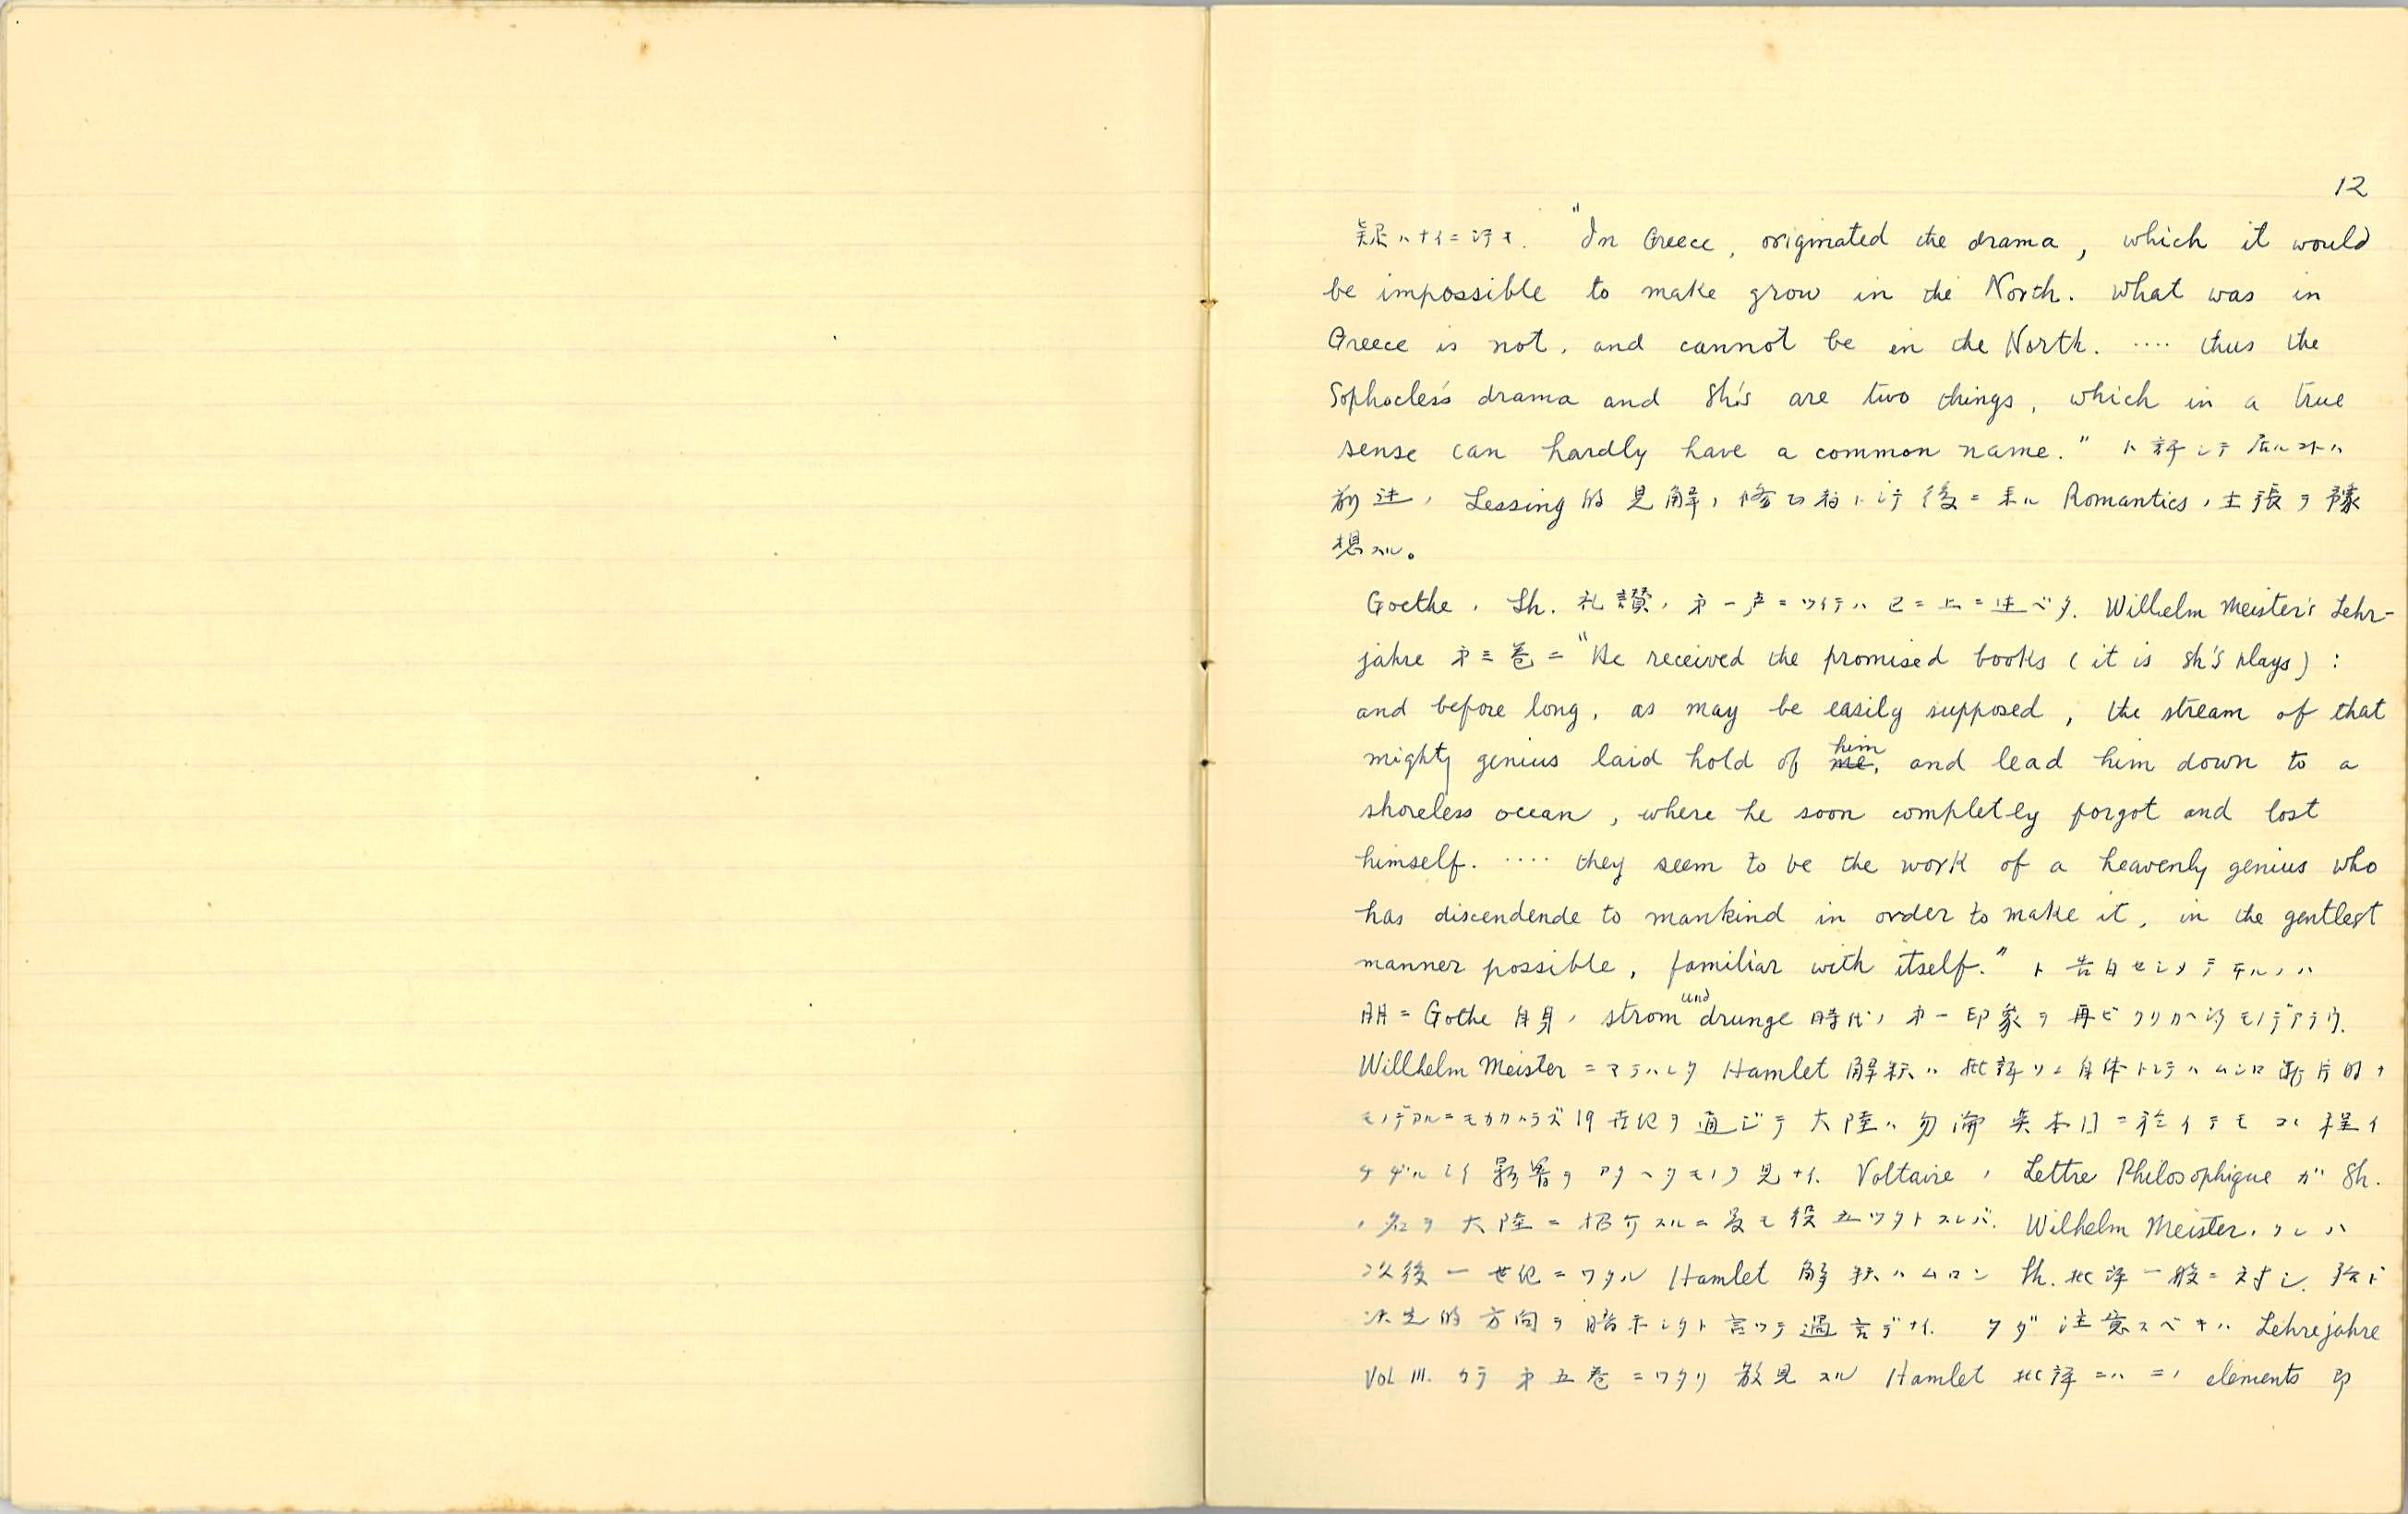 12
疑ハナイニシテモ. "In Greece, originated the drama, which it would
be impossible to make grow in the North. What was in
Greece is not, and cannot be in the North. .... thus the
Sophocles's drama and Sh's are two things, which in a true
sense can hardly have a common name." ト評シテ居ル
前述ノ Lessing 的見解ノ修正者トシテ後ニ来ル Romantics ノ主張ヲ豫
想スル。
Goethe ノ Sh. 礼讃ノ第一声ニツイテハ已ニ上ニ述ベタ. Wilhelm Meister's Lehr-
jahre 第三巻ニ "He received the promised books (it is Sh's plays) :
and before long, as may be easily supposed, the stream of that
mighty genius laid hold of him, and lead him down to a
shoreless ocean, where he soon completly forgot and lost
himself. .... they seem to be the work of a heavenly genius who
has discendende to mankind in order to make it, in the gentlest
manner possible, familiar with itself." ト告白セシメテヰルノハ
明ニ Gothe 自身ノ strom und drunge 時代ノ第一印象ヲ再ビクリカヘシタモノデアラウ.
Willhelm Meister ニアラハレタ Hamlet 解釈ハ批評ソレ自体トシテハムシロ断片的ナ
モノデアルニモカカハラズ 19 世紀ヲ通ジテ大陸ハ勿論英本国ニ於イテモコレ程イ
チヂルシイ影響ヲアタヘタモノヲ見ナイ. Voltaire ノ Lettre Philosophique ガ Sh.
ノ名ヲ大陸ニ紹介スルニ最モ役立ツタトスレバ. Wilhelm Meister ノソレハ
以後一世紀ニワタル Hamlet 解釈ハムロン Sh. 批評一般ニ対シ. 殆ド
決定的方向ヲ暗示シタト言ツテ過言デナイ. タダ注意スベキハ Lehrejahre
Vol III. カラ第五巻ニワタリ散見スル Hamlet 批評ニハ二ノ elements 即